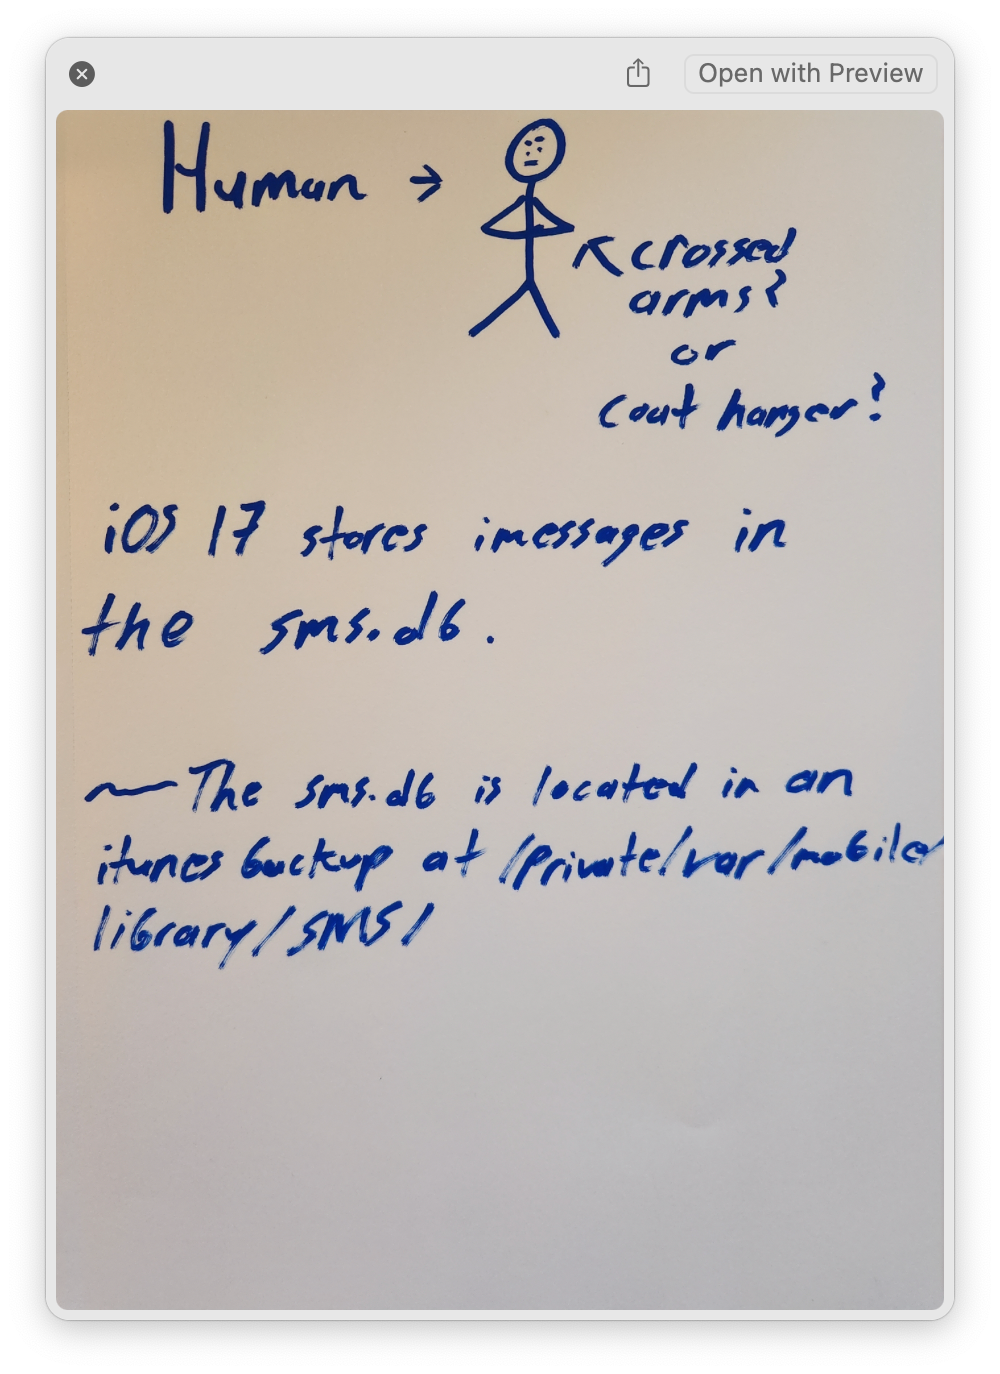 Open with Preview
Human →
crossed
arms?
or
coat hanger?
iOS 17 stores imessages in
the sms.db.
~ The sms.db is located in an
itunes backup at /private/var/mobile/
library/SMS/